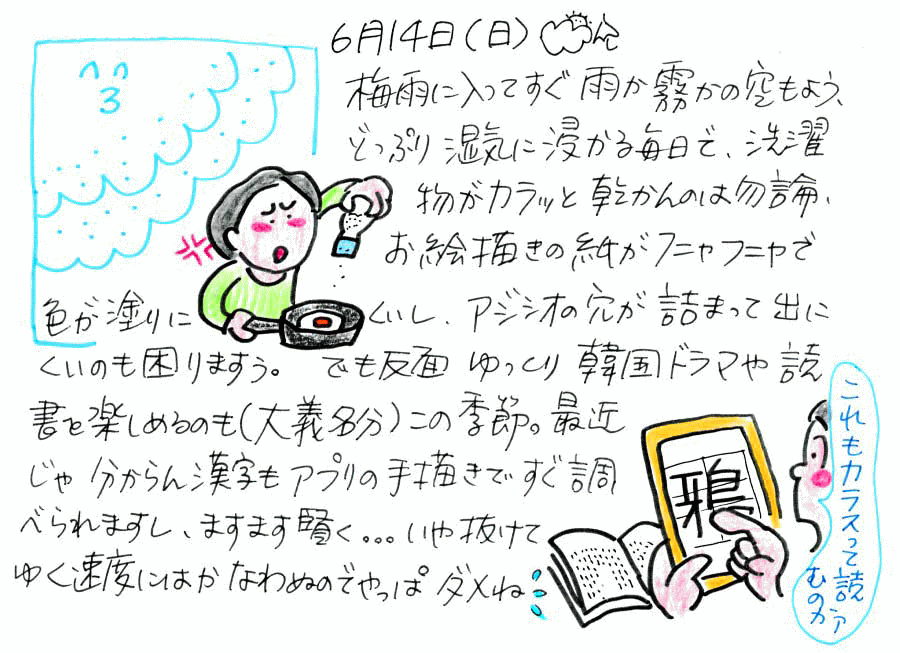 6月14日(日)
梅雨に入ってすぐ雨か霧かの空もよう、
どっぷり湿気に浸かる毎日で、洗濯
物がカラッと乾かんのは勿論、
お絵描きの紙がフニャフニャで
色が塗りにくいし、アジシオの穴が詰まって出に
くいのも困りますぅ。でも反面ゆっくり韓国ドラマや読
書を楽しめるのも(大義名分)この季節。最近
じゃ分からん漢字もアプリの手描きですぐ調
べられますし、ますます賢く...いや抜けて
ゆく速度にはかなわぬのでやっぱダメね
鴉
これもカラスって読
むのかァ